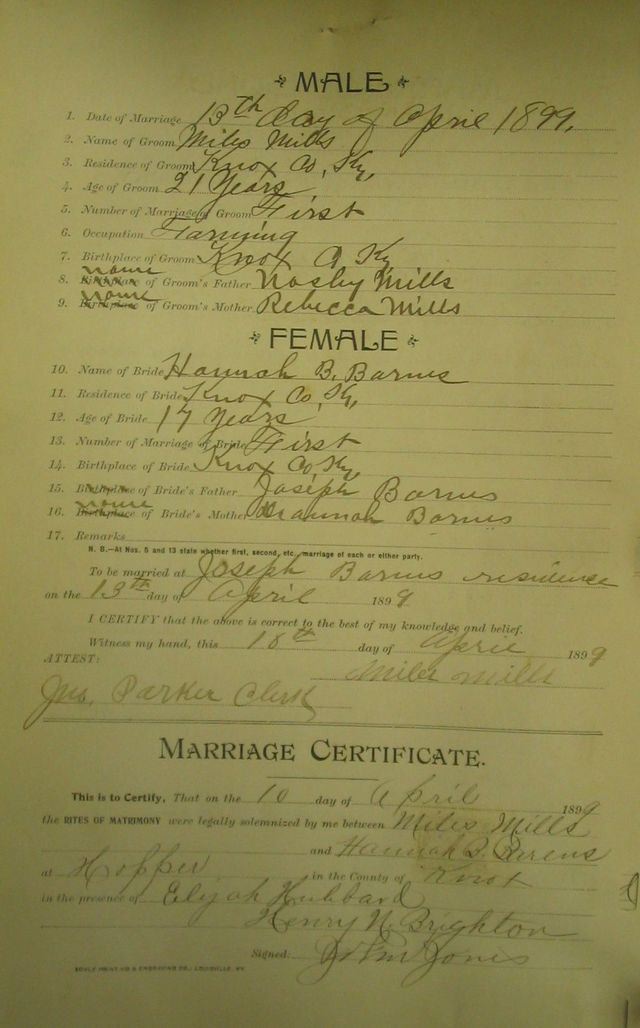 MALE
1. Date of Marriage 13th day of April 1899.
2. Name of Groom Miles Mills
3. Residence of Groom Knox Co, Ky,
4. Age of Groom 21 Years
5. Number of Marriage of Groom First
6. Occupation Farming
7. Birthplace of Groom Knox Co Ky
name
8. Birthplace of Groom's Father Mosby Mills
name
9. Birthplace of Groom's Mother Rebecca Mills
FEMALE
10. Name of Bride Hannah B. Barnes
11. Residence of Bride Knox Co, Ky,
12. Age of Bride 17 Years
13. Number of Marriage of Bride First
14. Birthplace of Bride Knox Co Ky,
15. Birthplace of Bride's Father Joseph Barnes
name
16. Birthplace of Bride's Mother Hannah Barnes
17. Remarks
N. B.—At Nos. 5 and 13 state whether first, second, etc., marriage of each or either party.
To be married at Joseph Barnes residence
on the 13th day of April 1899
I CERTIFY that the above is correct to the best of my knowledge and belief.
Witness my hand, this 10th day of April 1899
ATTEST: Miles Mills
Jno. Parker Clerk
MARRIAGE CERTIFICATE.
This is to Certify, That on the 10 day of April 1899
the RITES OF MATRIMONY were legally solemnized by me between Miles Mills
and Hannah B.
at Hopper in the County of Knox
in the presence of Elijah Hubbard
Henry N. Brighton
Signed: Jones
PRINTING & ENGRAVING CO., LOUISVILLE, KY.